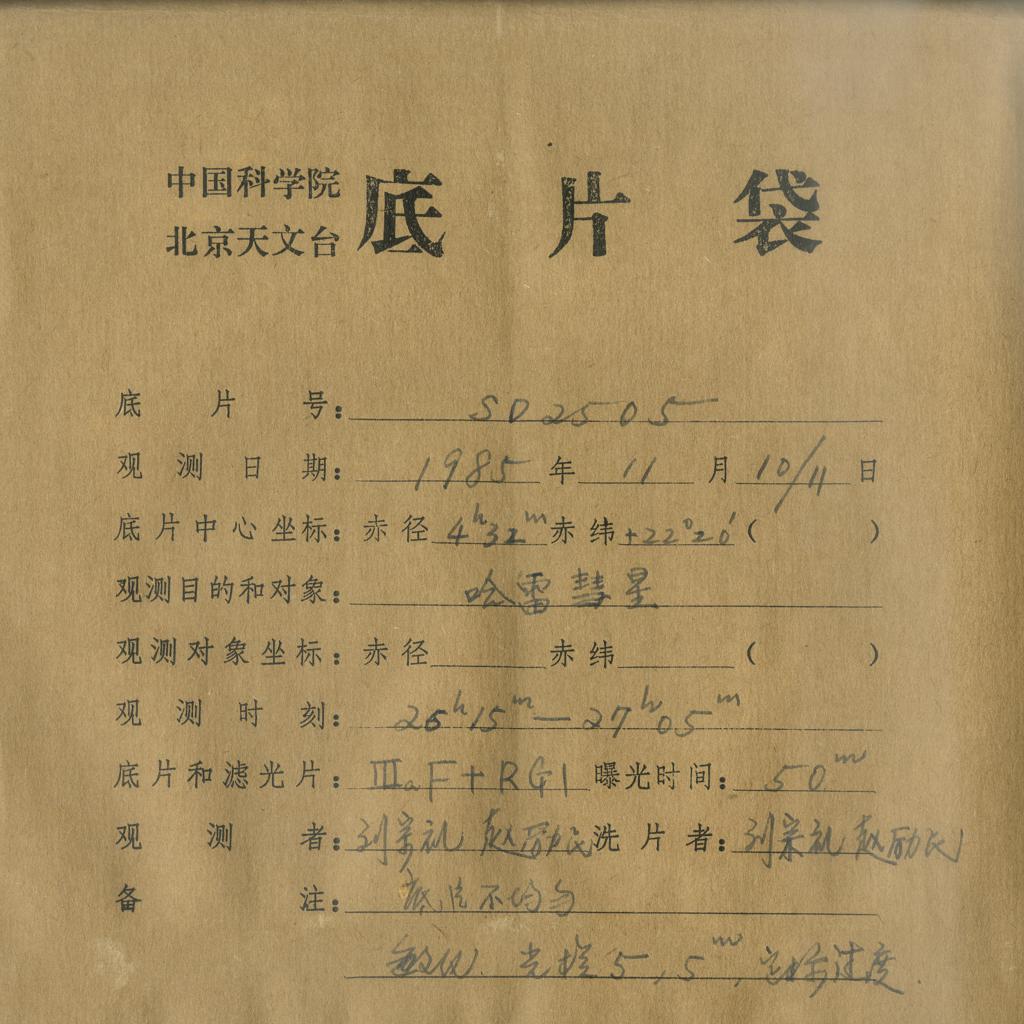 中国科学院
北京天文台 底片袋
底片号: SD2505
观测日期: 1985 年 11 月 10/11 日
底片中心坐标: 赤径 4h32m 赤纬 +22°20′ ( )
观测目的和对象: 哈雷彗星
观测对象坐标: 赤径 赤纬 ( )
观测时刻: 26h15m — 27h05m
底片和滤光片: ⅢaF+RG1 曝光时间: 50m
观测者: 刘宗礼 赵励民 洗片者: 刘宗礼 赵励民
备注: 底片不均匀
敏化. 光 5, 5m, 过度